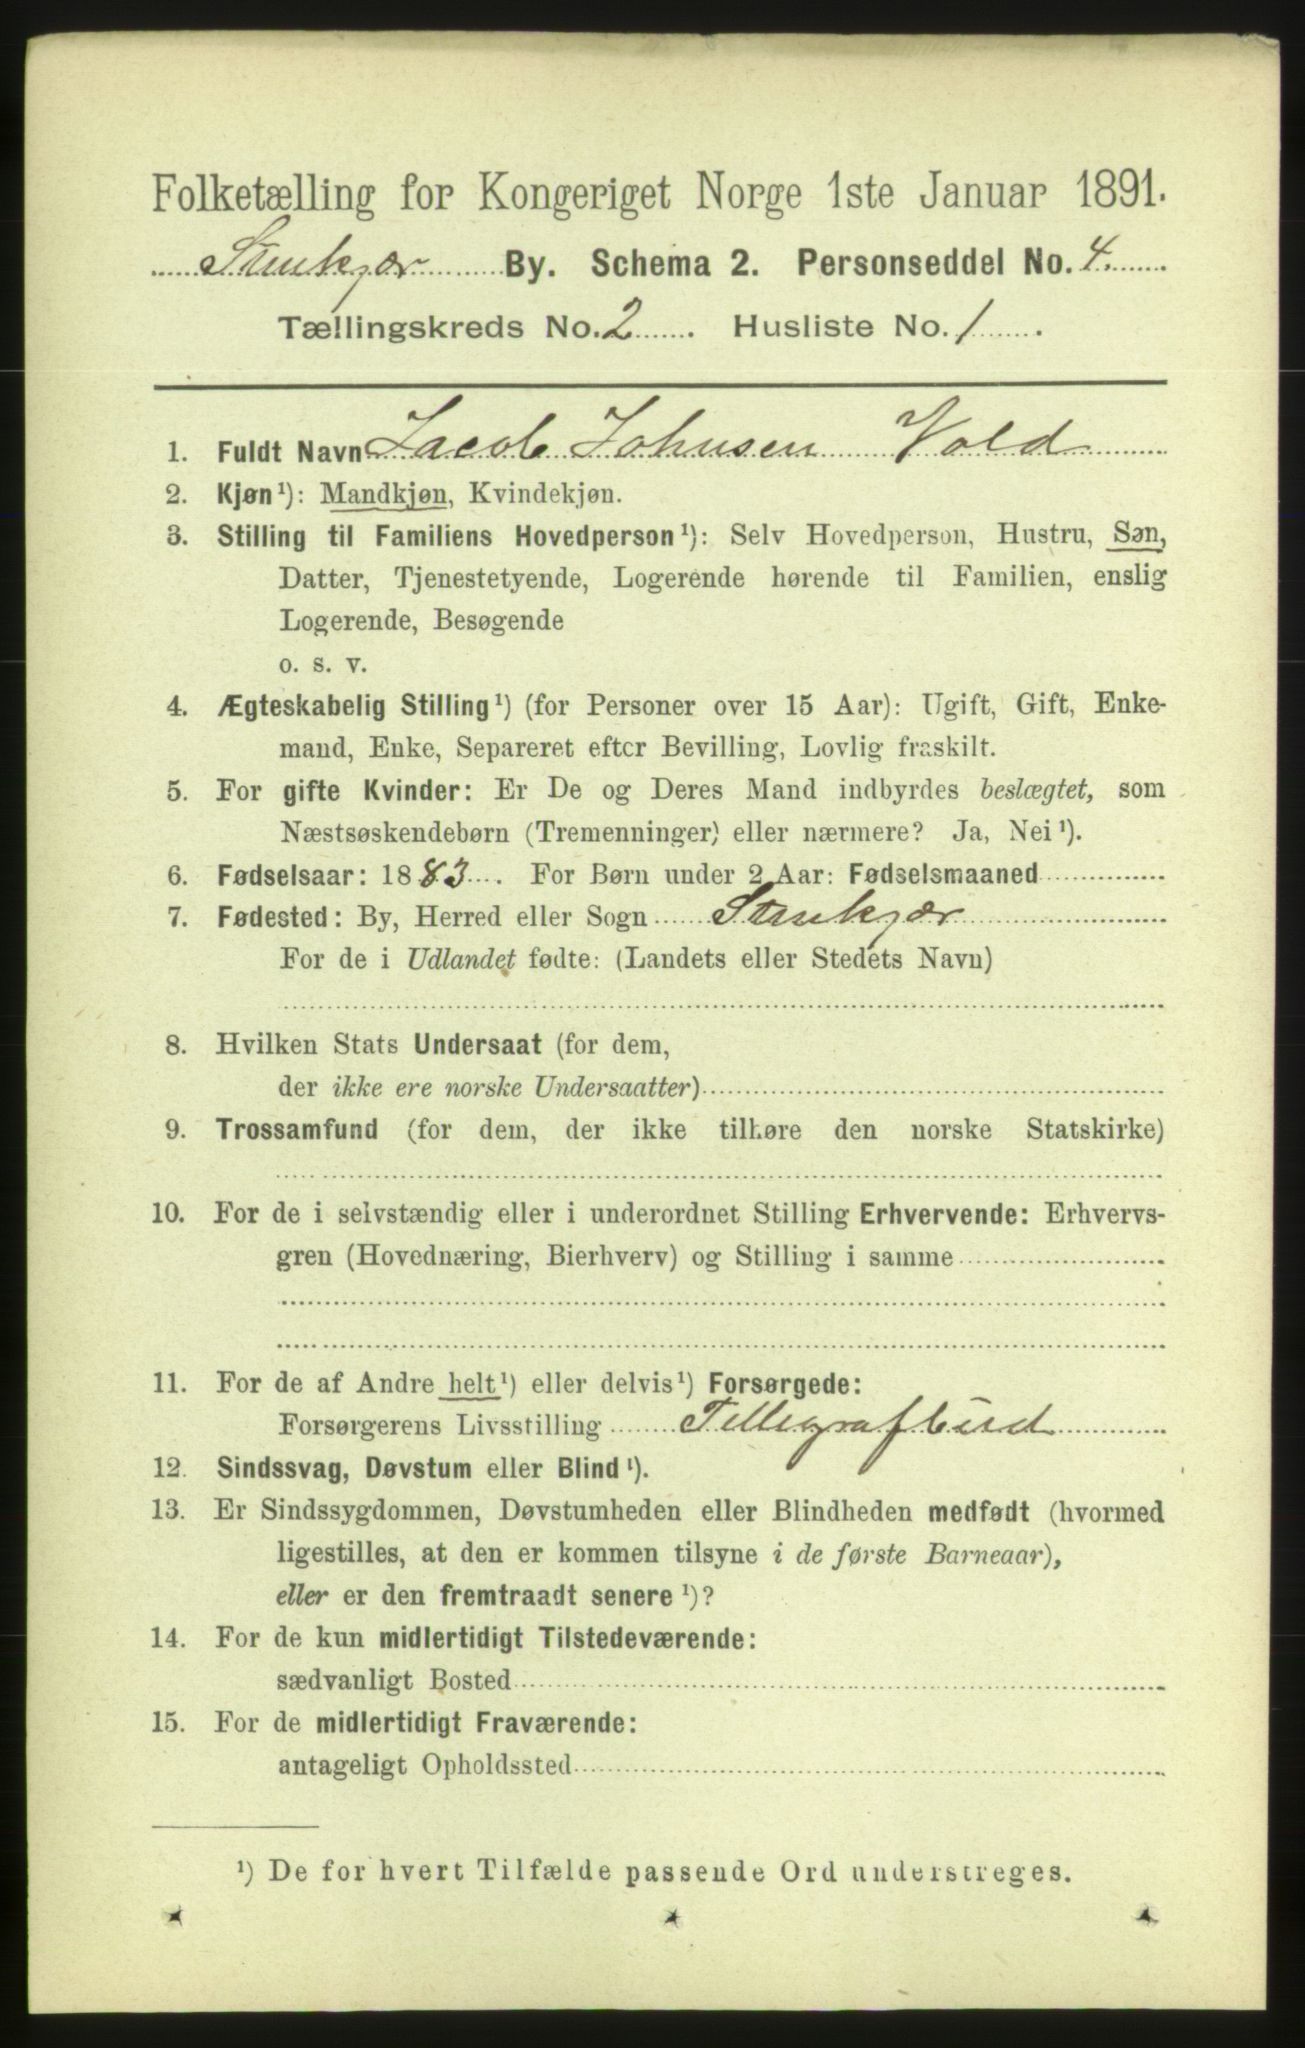 Folketælling for Kongeriget Norge 1ste Januar 1891.
Stenkjær By. Schema 2. Personseddel No. 4.
Tællingskreds No. 2. Husliste No. 1.
1. Fuldt Navn Jacob Johnsen Vold
2. Kjøn¹): Mandkjøn, Kvindekjøn.
3. Stilling til Familiens Hovedperson¹): Selv Hovedperson, Hustru, Søn,
Datter, Tjenestetyende, Logerende hørende til Familien, enslig
Logerende, Besøgende
o. s. v.
4. Ægteskabelig Stilling¹) (for Personer over 15 Aar): Ugift, Gift, Enke-
mand, Enke, Separeret efter Bevilling, Lovlig fraskilt.
5. For gifte Kvinder: Er De og Deres Mand indbyrdes beslægtet, som
Næstsøskendebørn (Tremenninger) eller nærmere? Ja, Nei¹).
6. Fødselsaar: 1883. For Børn under 2 Aar: Fødselsmaaned
7. Fødested: By, Herred eller Sogn Stenkjær
For de i Udlandet fødte: (Landets eller Stedets Navn)
8. Hvilken Stats Undersaat (for dem,
der ikke ere norske Undersaatter)
9. Trossamfund (for dem, der ikke tilhøre den norske Statskirke)
10. For de i selvstændig eller i underordnet Stilling Erhvervende: Erhvervs-
gren (Hovednæring, Bierhverv) og Stilling i samme
11. For de af Andre helt¹) eller delvis¹) Forsørgede:
Forsørgerens Livsstilling Tellegrafbud
12. Sindssvag, Døvstum eller Blind¹).
13. Er Sindssygdommen, Døvstumheden eller Blindheden medfødt (hvormed
ligestilles, at den er kommen tilsyne i de første Barneaar),
eller er den fremtraadt senere¹)?
14. For de kun midlertidigt Tilstedeværende:
sædvanligt Bosted
15. For de midlertidigt Fraværende:
antageligt Opholdssted
¹) De for hvert Tilfælde passende Ord understreges.